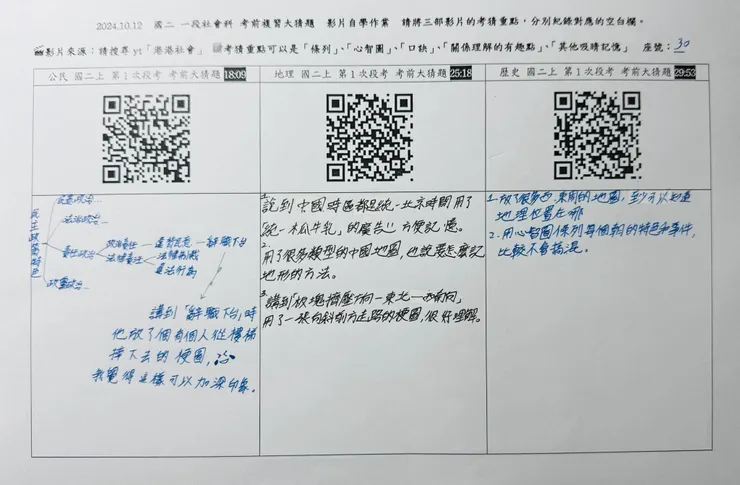 2024.10.12 國二 一段社會科 考前複習大猜題 影片自學作業 請將三部影片的考猜重點,分別紀錄對應的空白欄。
影片來源:請搜尋 yt「港港社會」 考猜重點可以是「條列」、「心智圖」、「口訣」、「關係理解的有趣點」、「其他吸睛記憶」 座號:30
公民 國二上 第1次段考 考前大猜題 18:09
地理 國二上 第1次段考 考前大猜題 25:18
歷史 國二上 第1次段考 考前大猜題 29:53
民主政治特色
民意政治…
法治政治…
責任政治
政治責任
違背民意
辭職下台
法律責任
法律制裁
違法行為
政黨政治…
講到「辭職下台」時
他放了個有個人從樓梯
摔下去的梗圖,
我覺得這樣可以加深印象。
1.
說到中國時區都統一北京時間用了
「統一木瓜牛乳」的廣告!! 方便記憶。
2.
用了很多類型的中國地圖,也說要怎麼記
地形的方法。
3.
講到「板塊擠壓方向—東北—西南向」
用了一張向斜前方走路的梗圖,很好理解。
1. 放了很多西、東周的地圖,至少可以知道
地理位置在哪
2. 用心智圖條列每個朝的特色和事件,
比較不會搞混。